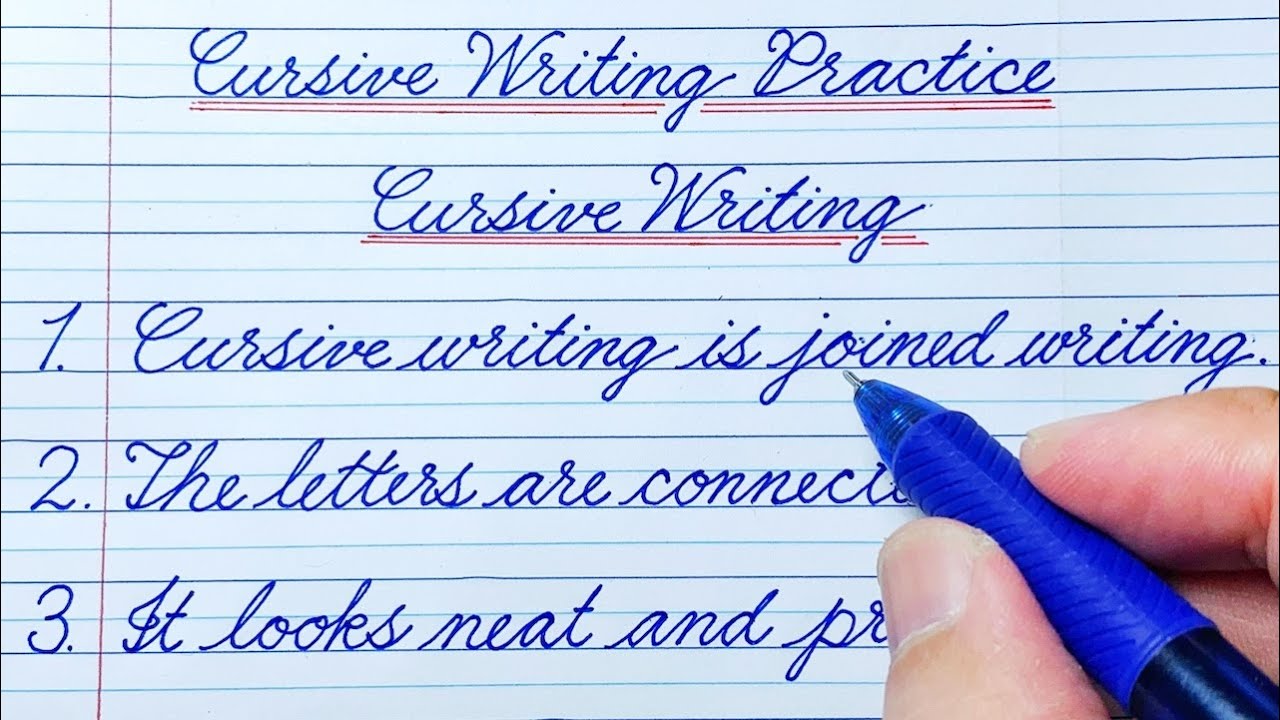 Cursive Writing Practice
Cursive Writing
1. Cursive writing is joined writing.
2. The letters are
3. It looks neat and